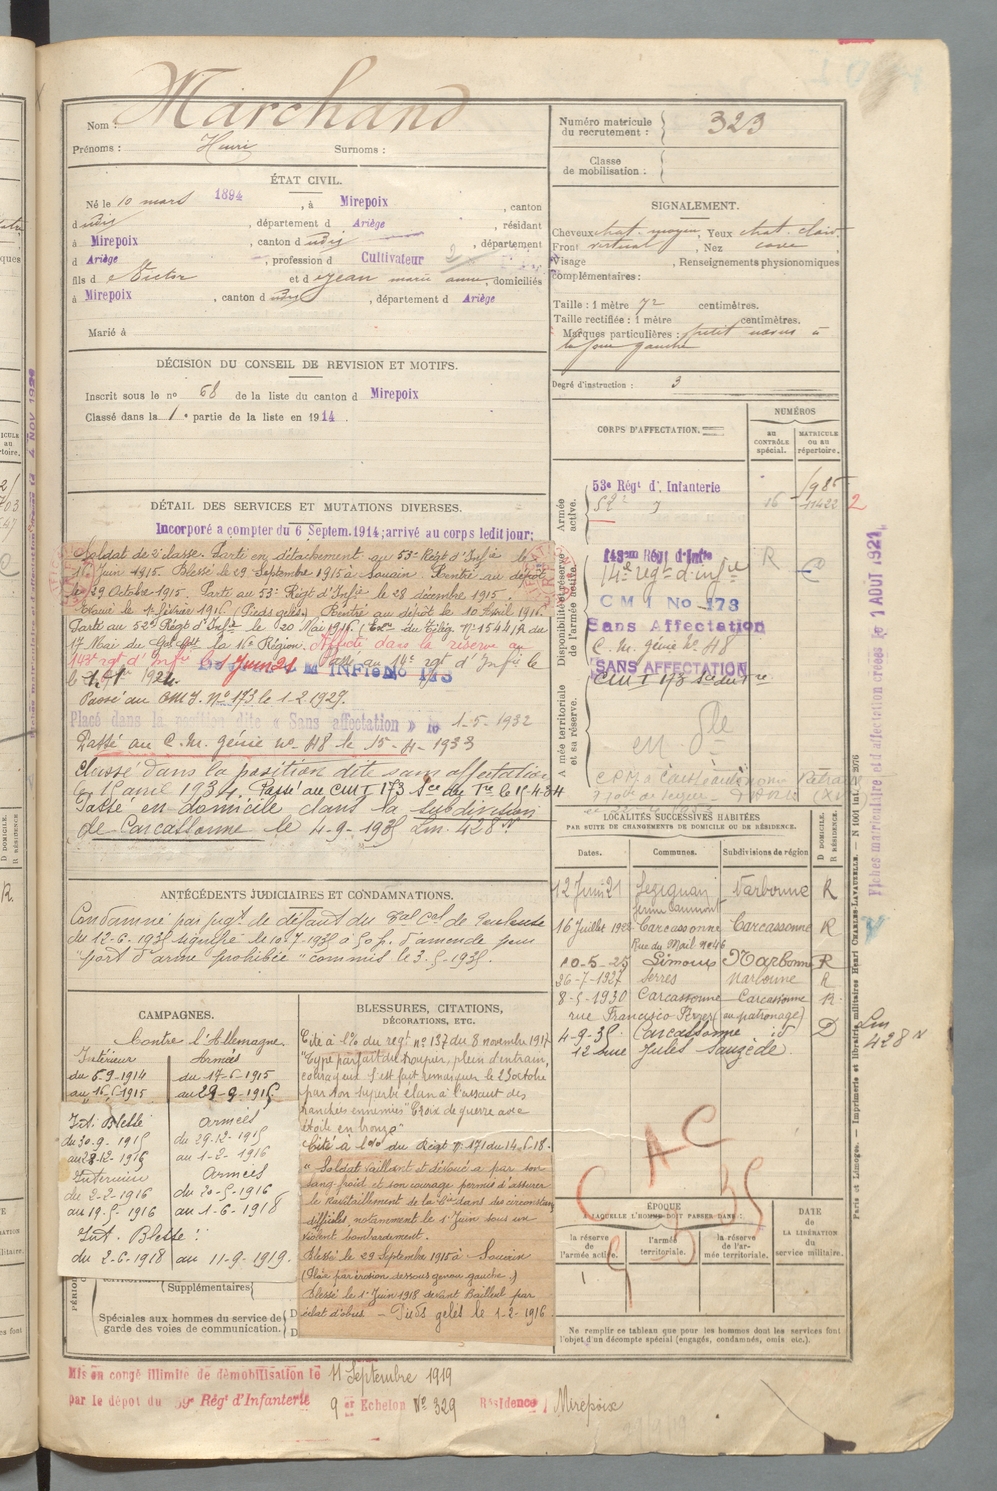 Marchand
Nom :
Prénoms : Henri Surnoms :
ÉTAT CIVIL.
Né le 10 mars 1894, à Mirepoix, canton
dudit, département d Ariège, résidant
à Mirepoix, canton dudit, département
d Ariège, profession d Cultivateur
fils d Victor et d Jean marie anne, domiciliés
à Mirepoix, canton dudit, département d Ariège
Marié à
DÉCISION DU CONSEIL DE REVISION ET MOTIFS.
Inscrit sous le no 68 de la liste du canton d Mirepoix
Classé dans la 1e partie de la liste en 1914.
DÉTAIL DES SERVICES ET MUTATIONS DIVERSES.
Incorporé a compter du 6 Septem. 1914; arrivé au corps ledit jour;
Soldat de 2e classe. Parti en détachement au 53e Régt d'Infie le
16 Juin 1915. Blessé le 29 Septembre 1915 à Souain. Rentré au dépôt
le 29 Octobre 1915. Parti au 53e Régt d'Infie le 28 décembre 1915.
Evacué le 1er février 1916 (Pieds gelés). Rentré au dépôt le 10 Avril 1916.
Parti au 52e Régt d'Infie le 20 Mai 1916 (Exon du Télég No 1544/R du
17 Mai du Gal Cdt la 16e Région. Affecté dans la réserve au
143e rgt d'Infie Juin 21 Passé au 14e rgt d'Infie le
le 1924.
Passé au CM I. No 173 le 1-2-1929.
Placé dans la position dite « Sans affectation » le 1-5-1932
Passé au C. M. Génie no 48 le 15-4-1933
Classé dans la position dite sans affectation
le 15 avril 1934. Passé au CM I 173 Son du Tre le 15-4-34
Passé en domicile dans la subdivision
de Carcassonne le 4-9-1935 Lm. 428 N
ANTÉCÉDENTS JUDICIAIRES ET CONDAMNATIONS.
Condamné par jugt de défaut du
du 12-6-1935 signifié le 10-7-1935 à 50 f. d'amende pour
"port d'arme prohibée" commis le 3-5-1935.
CAMPAGNES.
Contre l'Allemagne.
Intérieur Armées
du 6-9-1914 du 17-6-1915
au 16-6-1915 au 29-9-1915
Int. Blessé Armées
du 30-9-1915 du 29-12-1915
au 28-12-1915 au 1-2-1916
Intérieur Armées
du 2-2-1916 du 20-5-1916
au 19-5-1916 au 1-6-1918
Int. Blessé :
du 2-6-1918 au 11-9-1919.
(Supplémentaires
Spéciales aux hommes du service de
garde des voies de communication.
BLESSURES, CITATIONS,
DÉCORATIONS, ETC.
Cité à l'o/ du régt no 137 du 8 novembre 1917
"Type parfait du troupier, plein d'entrain,
courageux s'est fait remarquer le 23 octobre
par son superbe élan à l'assaut des
tranchées ennemies" Croix de guerre avec
étoile en bronze"
Cité à l'o/ du Régt No 171 du 14-6-18.
"Soldat vaillant et dévoué a par son
sang-froid et son courage permis d'assurer
le Ravitaillement de la Cie dans des circonstances
difficiles, notamment le 1er Juin sous un
violent bombardement.
Blessé le 29 Septembre 1915 à Souain
(Plaie par érosion dessous genou gauche.)
Blessé le 1er Juin 1918 devant Bailleul par
éclat d'obus – Pieds gelés le 1-2-1916.
Mis en congé illimité de démobilisation le 11 Septembre 1919
par le dépôt du 59e Régt d'Infanterie 9 Echelon No 329 Résidence Mirepoix
Numéro matricule
du recrutement : 323
Classe
de mobilisation :
SIGNALEMENT.
Cheveux chat. moyen, Yeux chat. clair
Front vertical, Nez cave
Visage, Renseignements physionomiques
complémentaires :
Taille : 1 mètre 72 centimètres.
Taille rectifiée : 1 mètre centimètres.
Marques particulières : petit naevus à
la joue gauche
Degré d'instruction : 3
CORPS D'AFFECTATION.
NUMÉROS
au CONTRÔLE spécial.
MATRICULE ou au répertoire.
Armée active.
53e Régt d'Infanterie
52e
16 11422 2
Disponibilité et réserve de l'armée active.
143em Régt d'Infie R
14e régt d'infie
C M I No 173
Sans Affectation
C. M. génie no 48
SANS AFFECTATION
Armée territoriale et sa réserve.
CM I 173 Son du Tre
LOCALITÉS SUCCESSIVES HABITÉES
PAR SUITE DE CHANGEMENTS DE DOMICILE OU DE RÉSIDENCE.
Dates. Communes. Subdivisions de région D DOMICILE. R RÉSIDENCE.
12 Juin 21 Lézignan Narbonne R
16 Juillet Carcassonne Carcassonne R
Rue du Mail no 46
10-5-25 Limoux Narbonne R
26-7-1927 Serres Narbonne R
8-5-1930 Carcassonne Carcassonne R
rue Francisco (au patronage)
4-9-35 Carcassonne id D
12 rue Jules Sauzède
Lm
428 N
ÉPOQUE
A LAQUELLE L'HOMME DOIT PASSER DANS :
la réserve de l'armée active.
l'armée territoriale.
la réserve de l'armée territoriale.
DATE DE LA LIBÉRATION du service militaire.
Ne remplir ce tableau que pour les hommes dont les services font
l'objet d'un décompte spécial (engagés, condamnés, omis etc.).
Fiches matriculaire et d'affectation créées le 1 AOUT 1921
Paris et Limoges. — Imprimerie et librairie militaires Henri CHARLES-LAVAUZELLE.